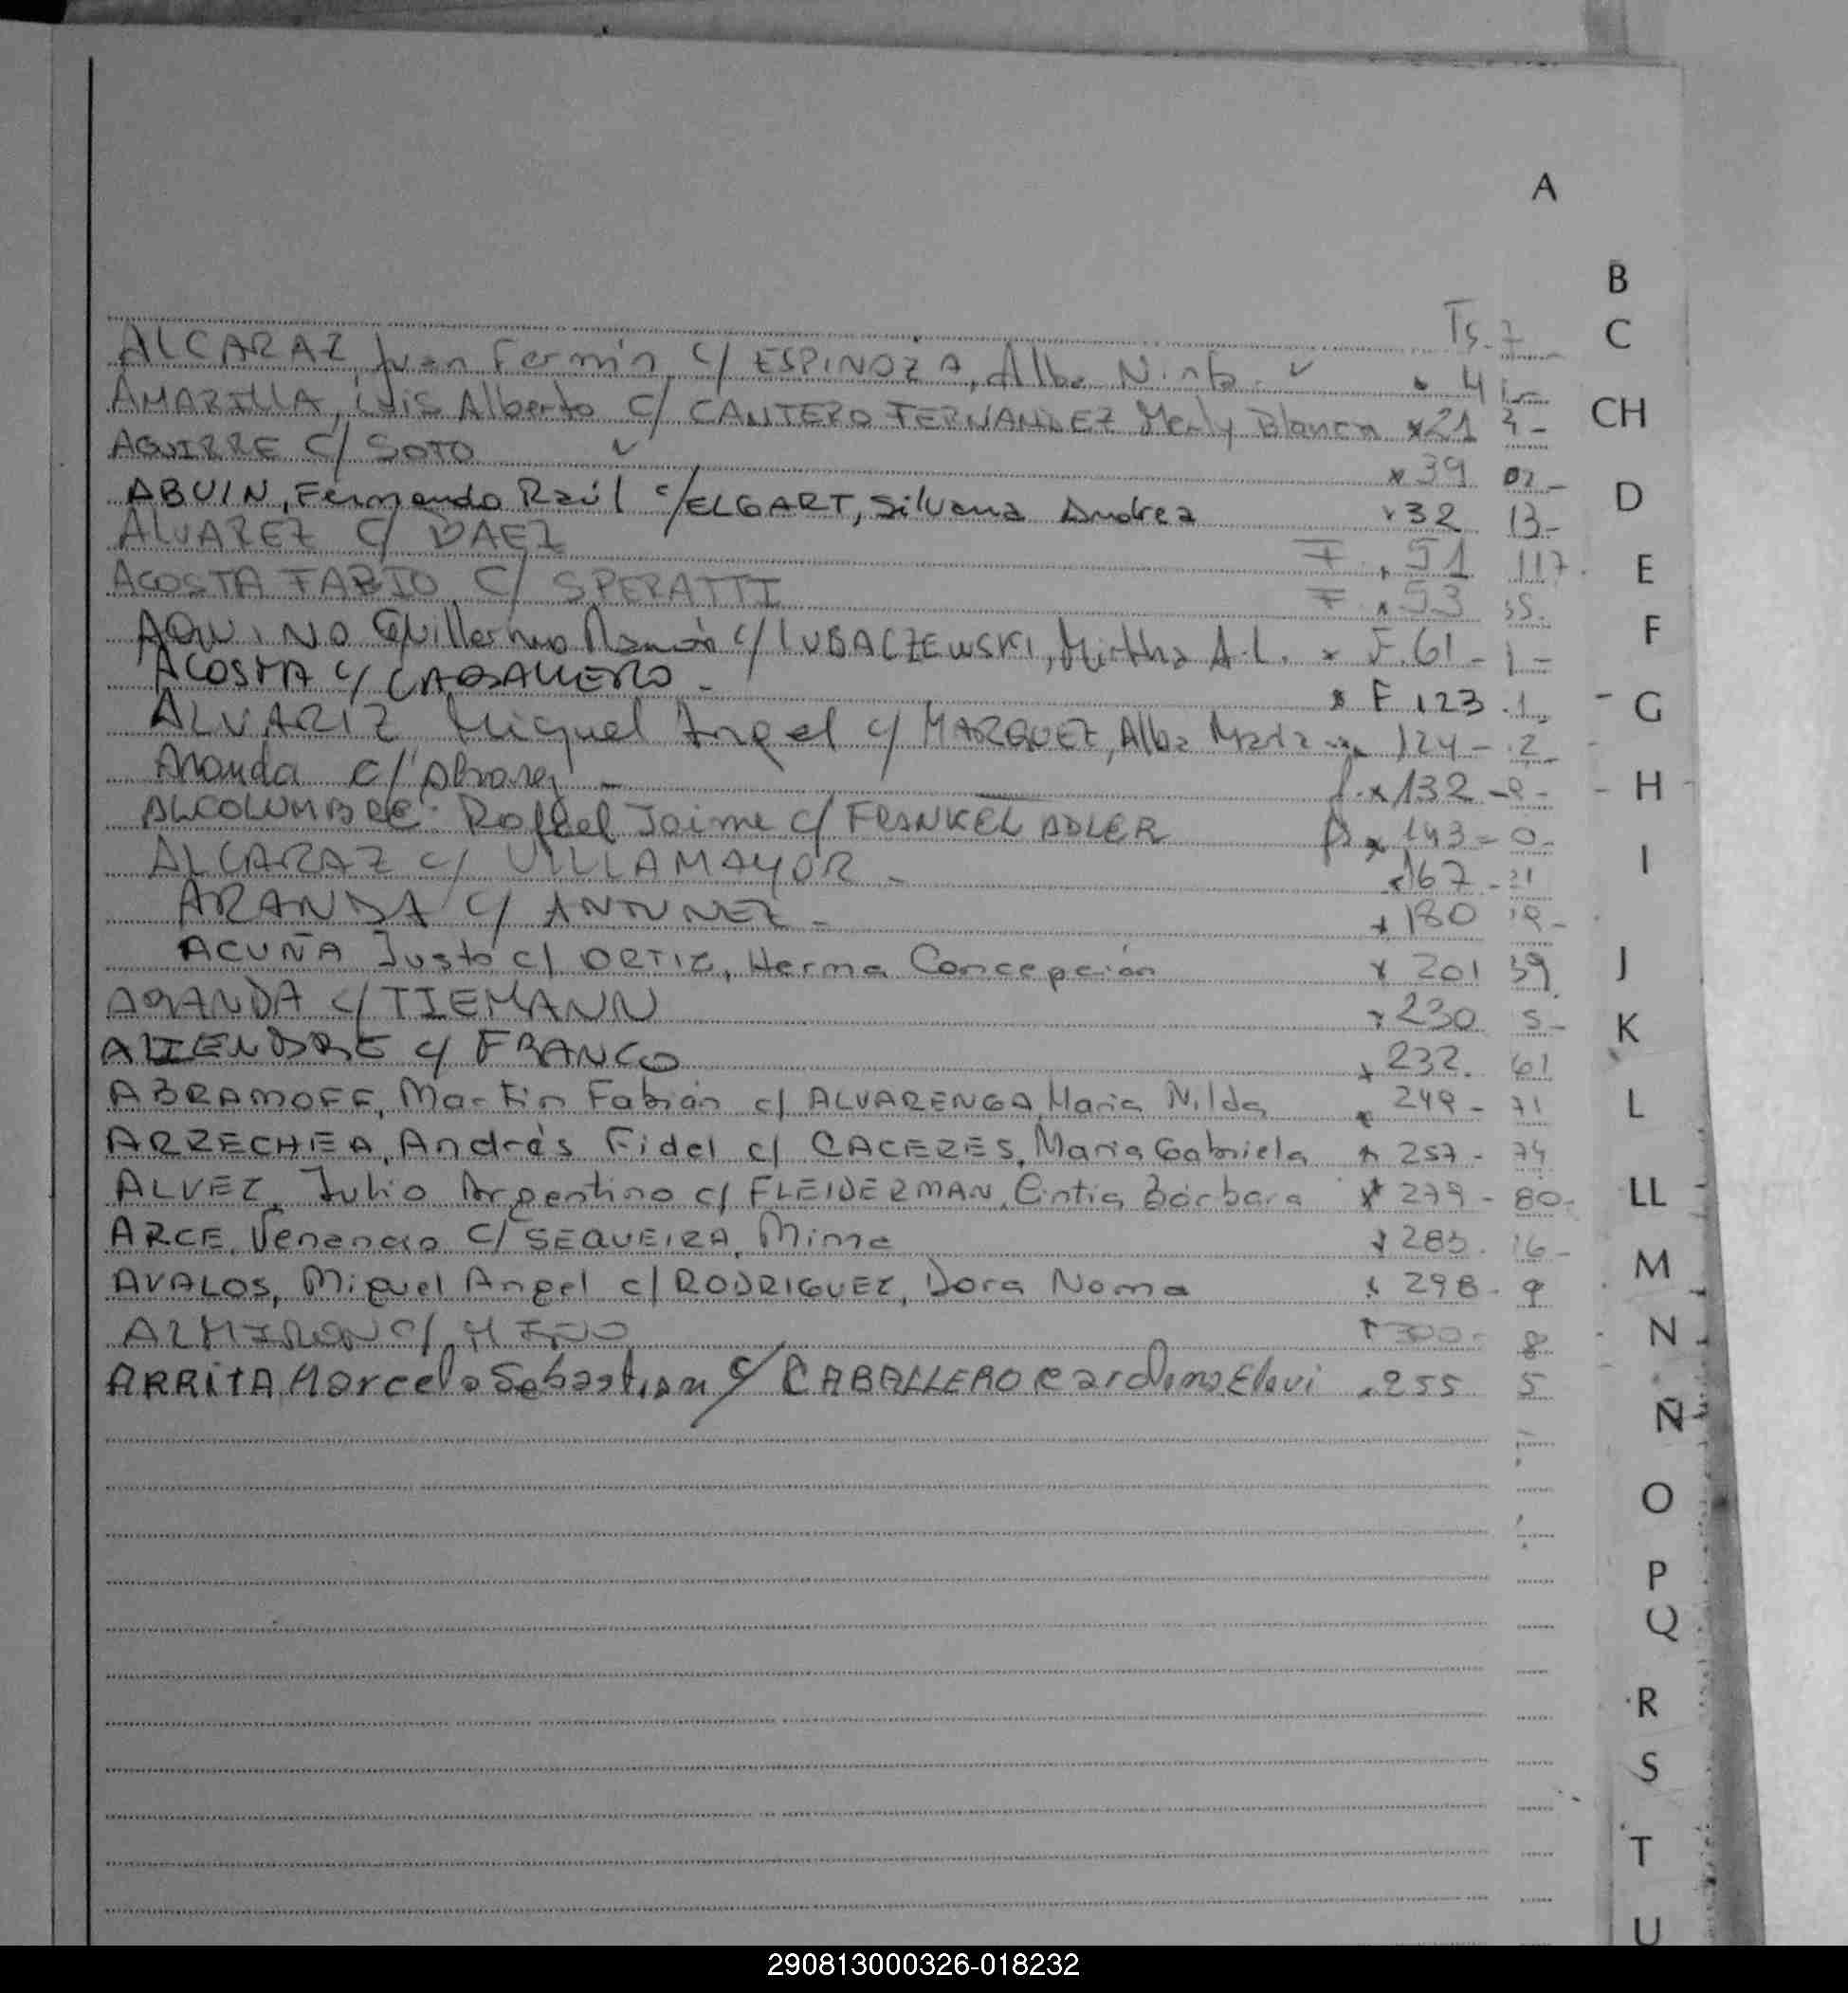 A
B
C
CH
D
E
F
G
H
I
J
K
L
LL
M
N
Ñ
O
P
Q
R
S
T
U
ALCARAZ, Juan Fermín c/ ESPINOZA, Alba Ninfa. 4
AMARILLA, Luis Alberto c/ CANTERO FERNANDEZ Blanca x 21
AGUIRRE C/ SOTO x 39 02-
ABUIN, Fernando Raúl c/ ELGART, Silvana Andrea x 32 13-
ALVAREZ C/ BAEZ F x 51 117.
ACOSTA FABIO C/ SPERATTI F x 53 35.
AQUINO Guillermo Ramón c/ LUBACZEWSKI, Mirtha A.L. x F. 61 - 1 -
ACOSTA c/ CABALLERO - x F 123 - 1
ALVARIZ Miguel Angel c/ MARQUEZ, Alba María x 124 - 2
Aranda c/ Alvarez - x 132 -
ALCOLUMBRE Rafael Jaime c/ FRANKEL ADLER x 143 - 0-
ALCARAZ c/ VILLAMAYOR - x 167 - 21
ARANDA c/ ANTUNEZ - x 180
ACUÑA Justo c/ ORTIZ, Herma Concepción x 201 39
ARANDA c/ TIEMANN x 230 5-
ALIENDRE c/ FRANCO x 232. 61
ABRAMOFF, Martin Fabián c/ ALVARENGA, Maria Nilda x 249 - 71
ARZECHEA, Andrés Fidel c/ CACERES, Maria Gabriela x 257 - 74
ALVEZ, Julio Argentino c/ FLEIDERMAN, Cintia Bárbara x 279 - 80-
ARCE, Venancio c/ SEQUEIRA, Mirna x 283. 16-
AVALOS, Miguel Angel c/ RODRIGUEZ, Dora Noma x 298 - 9
ALMIRON C/ MIÑO x 300 - 8
ARRITA Marcelo Sebastian c/ CABALLERO Cardono x 255 5
290813000326-018232